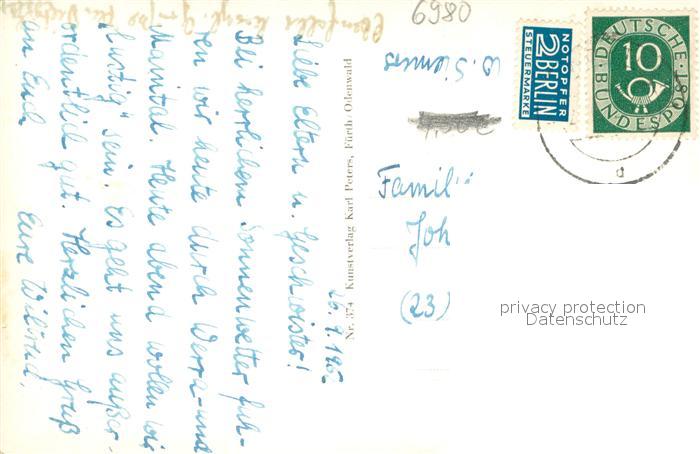 6980
26. 9. 1952
Liebe Eltern u. Geschwister!
Bei herrlichem Sonnenwetter fuh-
ren wir heute durch Werra- und
Maintal. Heute abend wollen wir
"lustig" sein. Es geht uns außer-
ordentlich gut. Herzlichen Gruß
an Euch Eure Wiltrud.
Nr. 374 Kunstverlag Karl Peters, Fürth/Odenwald
NOTOPFER
2 BERLIN
STEUERMARKE
DEUTSCHE
10
BUNDESPOST
Famil
Joh
(23)
privacy protection
Datenschutz